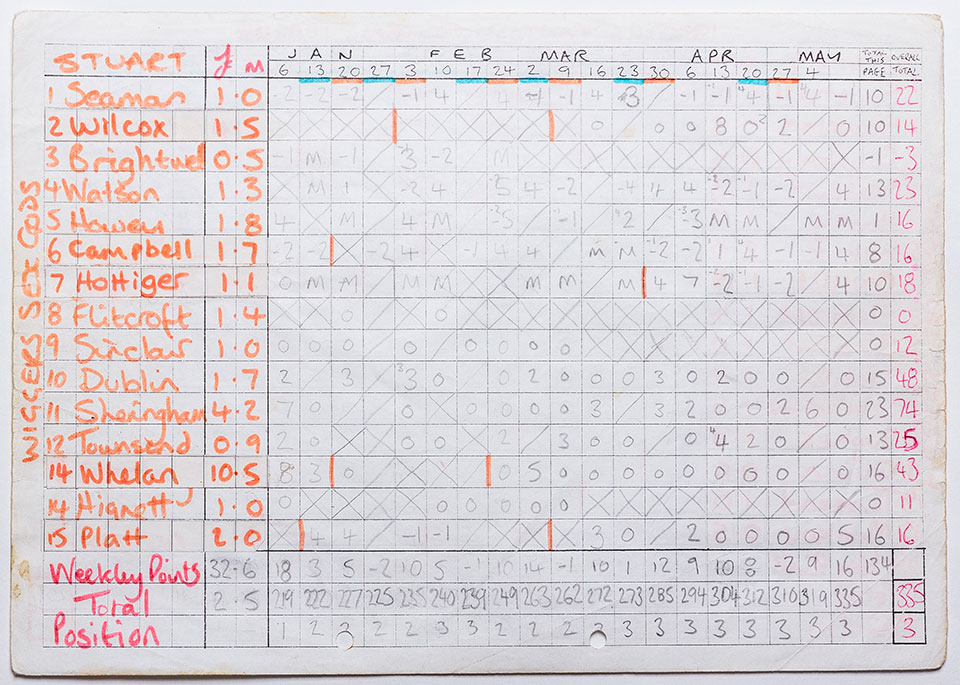 STUART £ m JAN FEB MAR APR MAY TOTAL THIS PAGE OVERALL TOTAL
6 13 20 27 3 10 17 24 2 9 16 23 30 6 13 20 27 4
1 Seaman 1.0 -2 -2 -2 / -1 4 4 -1 -1 4 3 / -1 -1 4 -1 4 -1 10 22
2 Wilcox 1.5 0 0 0 8 0 2 2 0 10 14
3 Brightwell 0.5 -1 M -1 3 -2 M -1 -3
4 Watson 1.3 M 1 -2 4 5 4 -2 -4 4 4 -2 -1 -2 4 13 23
5 Howey 1.8 4 M 4 M -1 2 -3 M M M M 1 16
6 Campbell 1.7 -2 -2 -2 4 -1 4 4 M M -2 -2 1 4 -1 -1 4 8 16
7 Hottiger 1.1 0 M M M M M M M 4 7 -2 -1 -2 4 10 18
8 Flitcroft 1.4 0 0 0 0
9 Sinclair 1.0 0 0 0 0 0 0 0 0 0 12
10 Dublin 1.7 2 3 3 0 2 0 0 0 3 0 2 0 0 0 15 48
11 Sheringham 4.2 7 0 0 0 0 0 0 3 3 2 0 0 2 6 0 23 74
12 Townsend 0.9 2 0 0 0 2 3 0 0 0 4 2 0 0 13 25
14 Whelan 10.5 8 3 0 0 5 0 0 0 0 0 0 0 0 0 16 43
14 Hignett 1.0 0 0 0 0 0 0 0 11
15 Platt 2.0 4 4 -1 -1 3 0 2 0 0 0 0 5 16 16
Weekly Points 32.6 18 3 5 -2 10 5 -1 10 14 -1 10 1 12 9 10 8 -2 9 16 134
Total 2.5 219 222 227 225 235 240 239 249 263 262 272 273 285 294 304 312 310 319 335 335
Position 1 2 2 2 2 3 3 2 2 2 2 3 3 3 3 3 3 3 3 3
WIGGERS SEX GODS